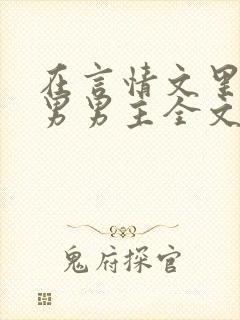 在言情文里
男男主全文
鬼府探官